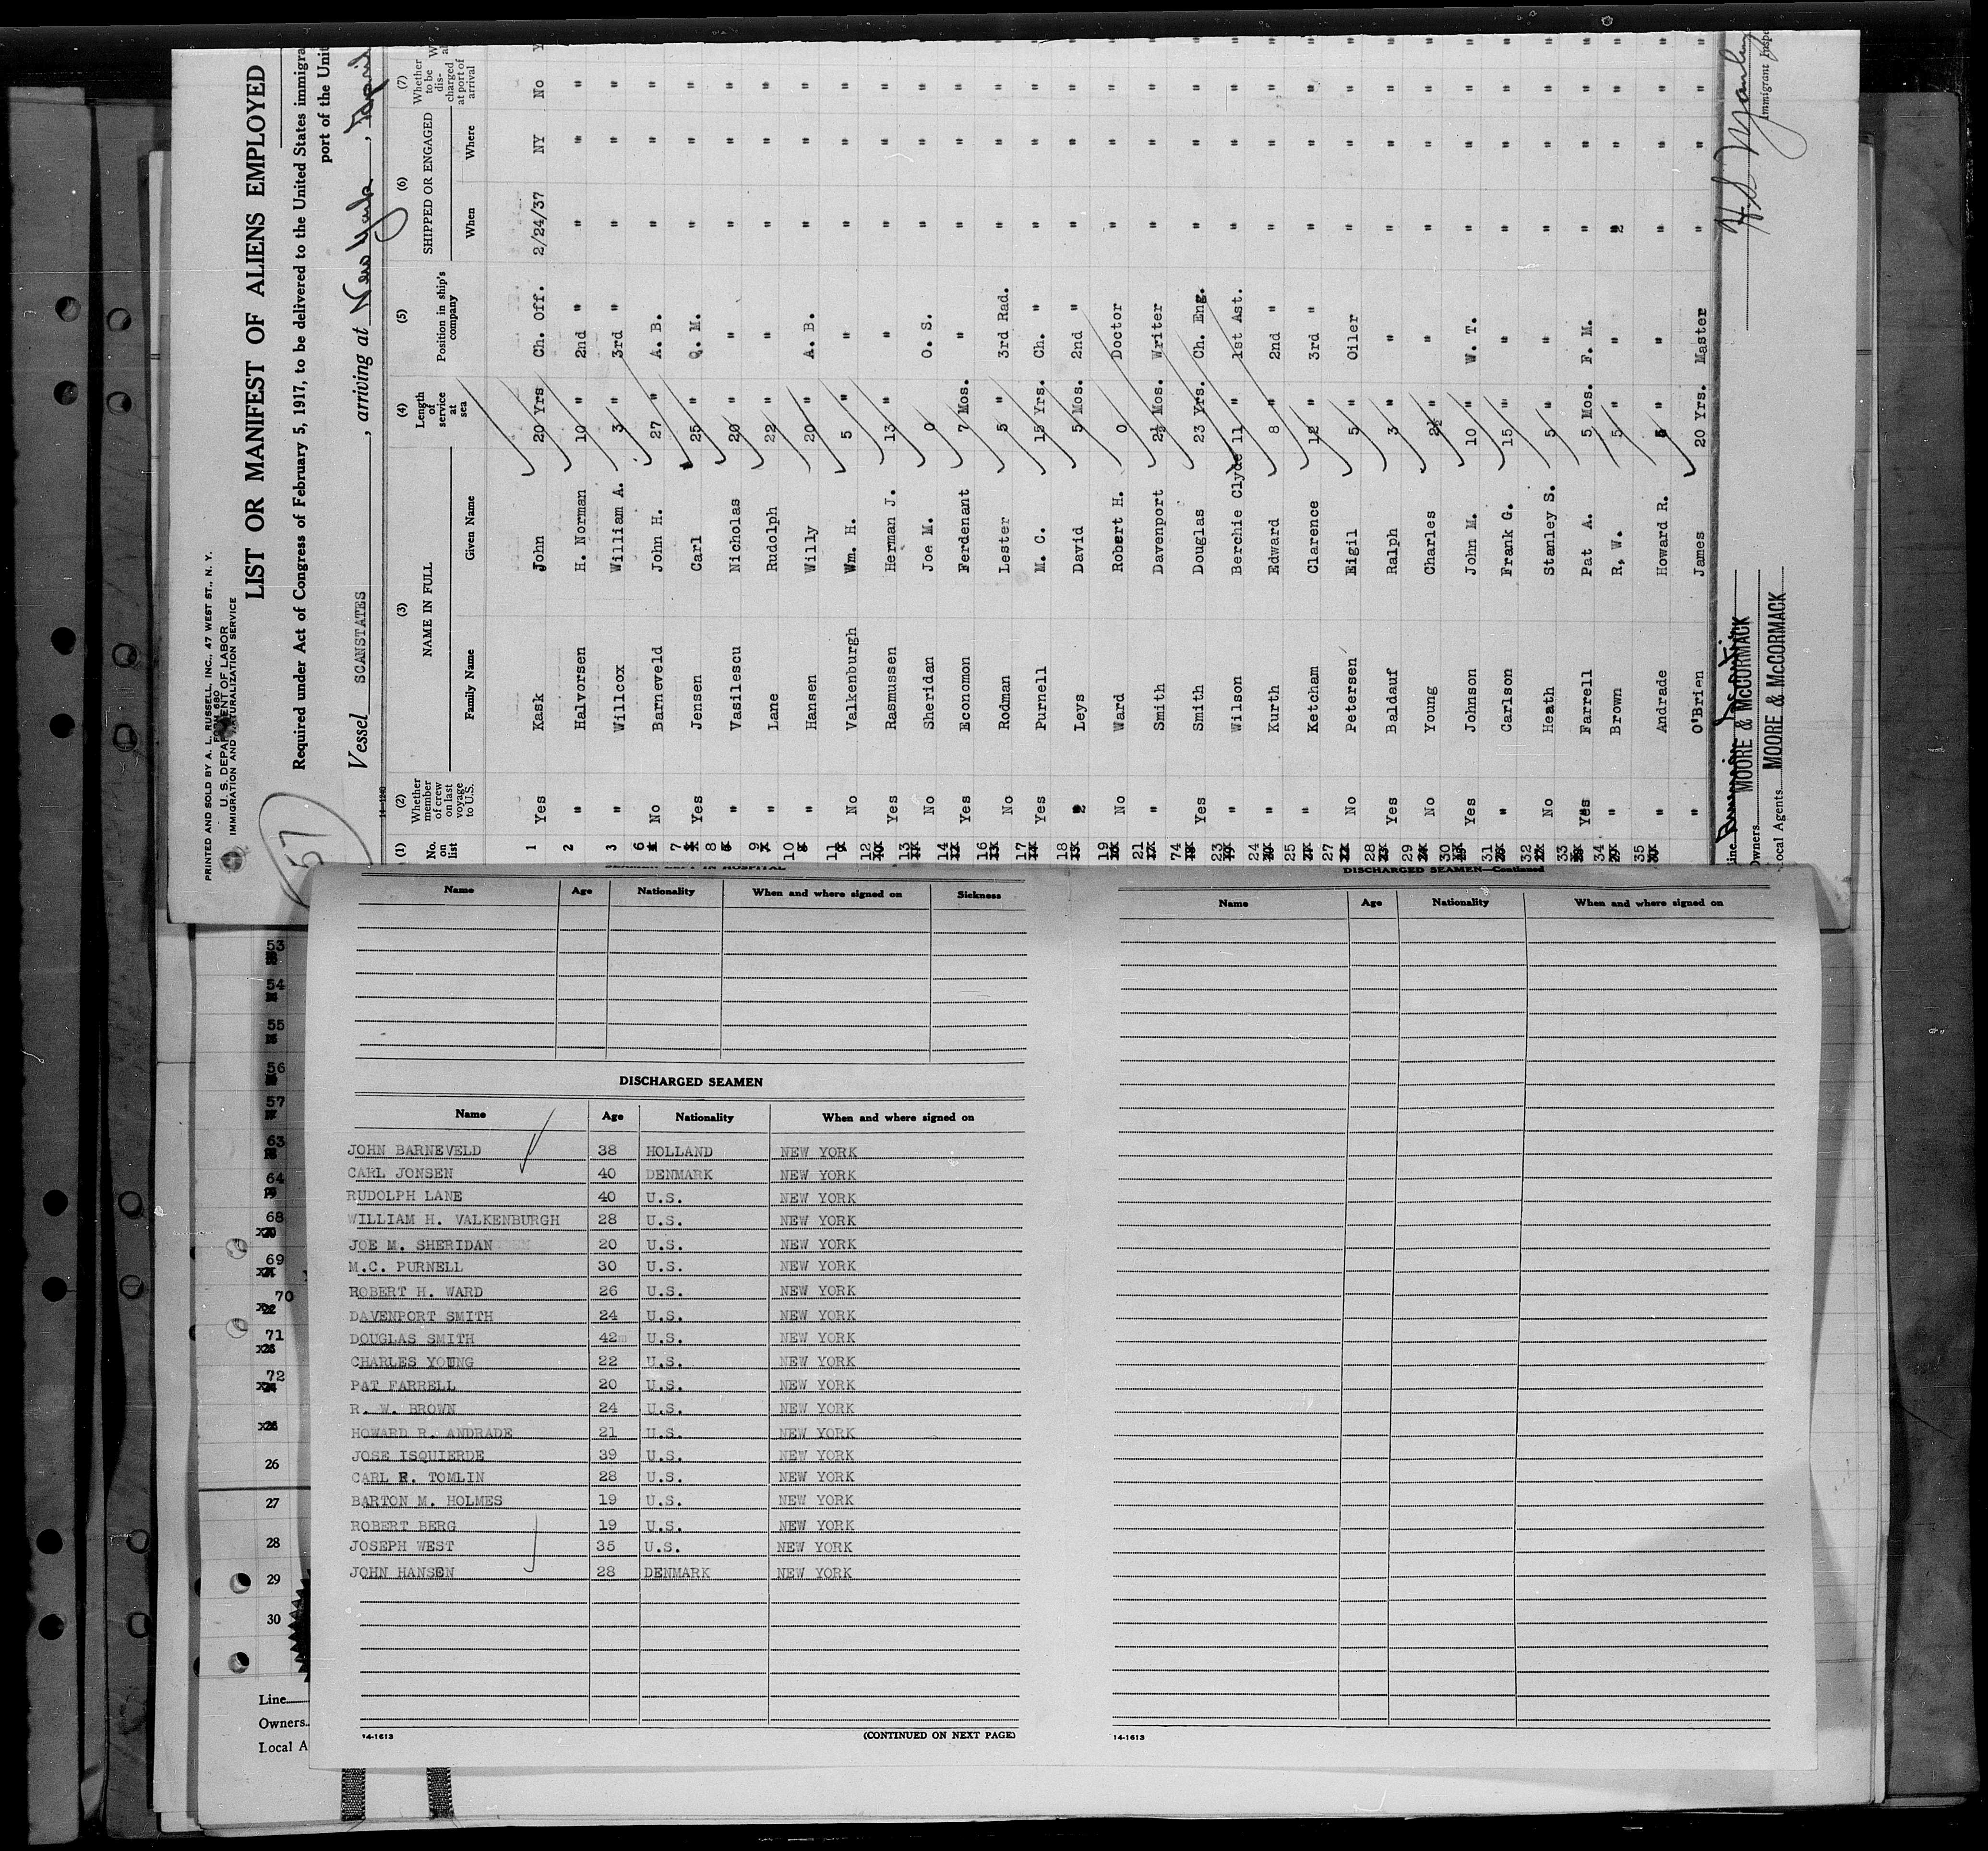 PRINTED AND SOLD BY A. L. RUSSELL, INC., 47 WEST ST., N. Y.
FORM 680
U. S. DEPARTMENT OF LABOR
IMMIGRATION AND NATURALIZATION SERVICE
57
LIST OR MANIFEST OF ALIENS EMPLOYED
Required under Act of Congress of February 5, 1917, to be delivered to the United States immigra
port of the Unit
Vessel SCANSTATES, arriving at New York, April
14-1240
(1) No. on list (2) Whether member of crew on last voyage to U.S. (3) NAME IN FULL Family Name Given Name (4) Length of service at sea (5) Position in ship's company (6) SHIPPED OR ENGAGED When Where (7) Whether to be discharged at port of arrival
1 Yes Kask John 20 Yrs Ch. Off. 2/24/37 NY No
2 " Halvorsen H. Norman 10 " 2nd " " " "
3 " Willcox William A. 3 " 3rd " " " "
6 No Barneveld John H. 27 " A. B. " " "
7 Yes Jensen Carl 25 " Q. M. " " "
8 " Vasilescu Nicholas 20 " " " " "
9 " Lane Rudolph 22 " " " " "
10 " Hansen Willy 20 " A. B. " " "
11 No Valkenburgh Wm. H. 5 " " " " "
12 Yes Rasmussen Herman J. 13 " " " " "
13 No Sheridan Joe M. 0 O. S. " " "
14 Yes Economon Ferdenant 7 Mos. " " " "
16 No Rodman Lester 5 " 3rd Rad. " " "
17 Yes Purnell M. C. 15 Yrs. Ch. " " " "
18 Leys David 5 Mos. 2nd " " " "
19 No Ward Robert H. 0 Doctor " " "
21 " Smith Davenport 2½ Mos. Writer " " "
74 Yes Smith Douglas 23 Yrs. Ch. Eng. " " "
23 " Wilson Berchie Clyde 11 " 1st Ast. " " "
24 " Kurth Edward 8 " 2nd " " " "
25 " Ketcham Clarence 12 " 3rd " " " "
27 No Petersen Eigil 5 " Oiler " " "
28 Yes Baldauf Ralph 3 " " " " "
29 No Young Charles 2½ " " " " "
30 Yes Johnson John M. 10 " W. T. " " "
31 " Carlson Frank G. 15 " " " " "
32 No Heath Stanley S. 5 " " " " "
33 Yes Farrell Pat A. 5 Mos. F. M. " " "
34 " Brown R, W. 5 " " " "
35 " Andrade Howard R. " " " " "
" O'Brien James 20 Yrs. Master " " "
Line
Owners MOORE & McCORMACK
Local Agents MOORE & McCORMACK
Immigrant Inspe
53
54
55
56
57
63
64
68
69
70
71
72
26
27
28
29
30
Line
Owners
Local A
SEAMEN LEFT IN HOSPITAL
Name Age Nationality When and where signed on Sickness
DISCHARGED SEAMEN
Name Age Nationality When and where signed on
JOHN BARNEVELD 38 HOLLAND NEW YORK
CARL JONSEN 40 DENMARK NEW YORK
RUDOLPH LANE 40 U.S. NEW YORK
WILLIAM H. VALKENBURGH 28 U.S. NEW YORK
JOE M. SHERIDAN 20 U.S. NEW YORK
M.C. PURNELL 30 U.S. NEW YORK
ROBERT H. WARD 26 U.S. NEW YORK
DAVENPORT SMITH 24 U.S. NEW YORK
DOUGLAS SMITH 42 U.S. NEW YORK
CHARLES YOUNG 22 U.S. NEW YORK
PAT FARRELL 20 U.S. NEW YORK
R. W. BROWN 24 U.S. NEW YORK
HOWARD R. ANDRADE 21 U.S. NEW YORK
JOSE ISQUIERDE 39 U.S. NEW YORK
CARL R. TOMLIN 28 U.S. NEW YORK
BARTON M. HOLMES 19 U.S. NEW YORK
ROBERT BERG 19 U.S. NEW YORK
JOSEPH WEST 35 U.S. NEW YORK
JOHN HANSEN 28 DENMARK NEW YORK
14-1613
(CONTINUED ON NEXT PAGE)
DISCHARGED SEAMEN—Continued
Name Age Nationality When and where signed on
14-1613